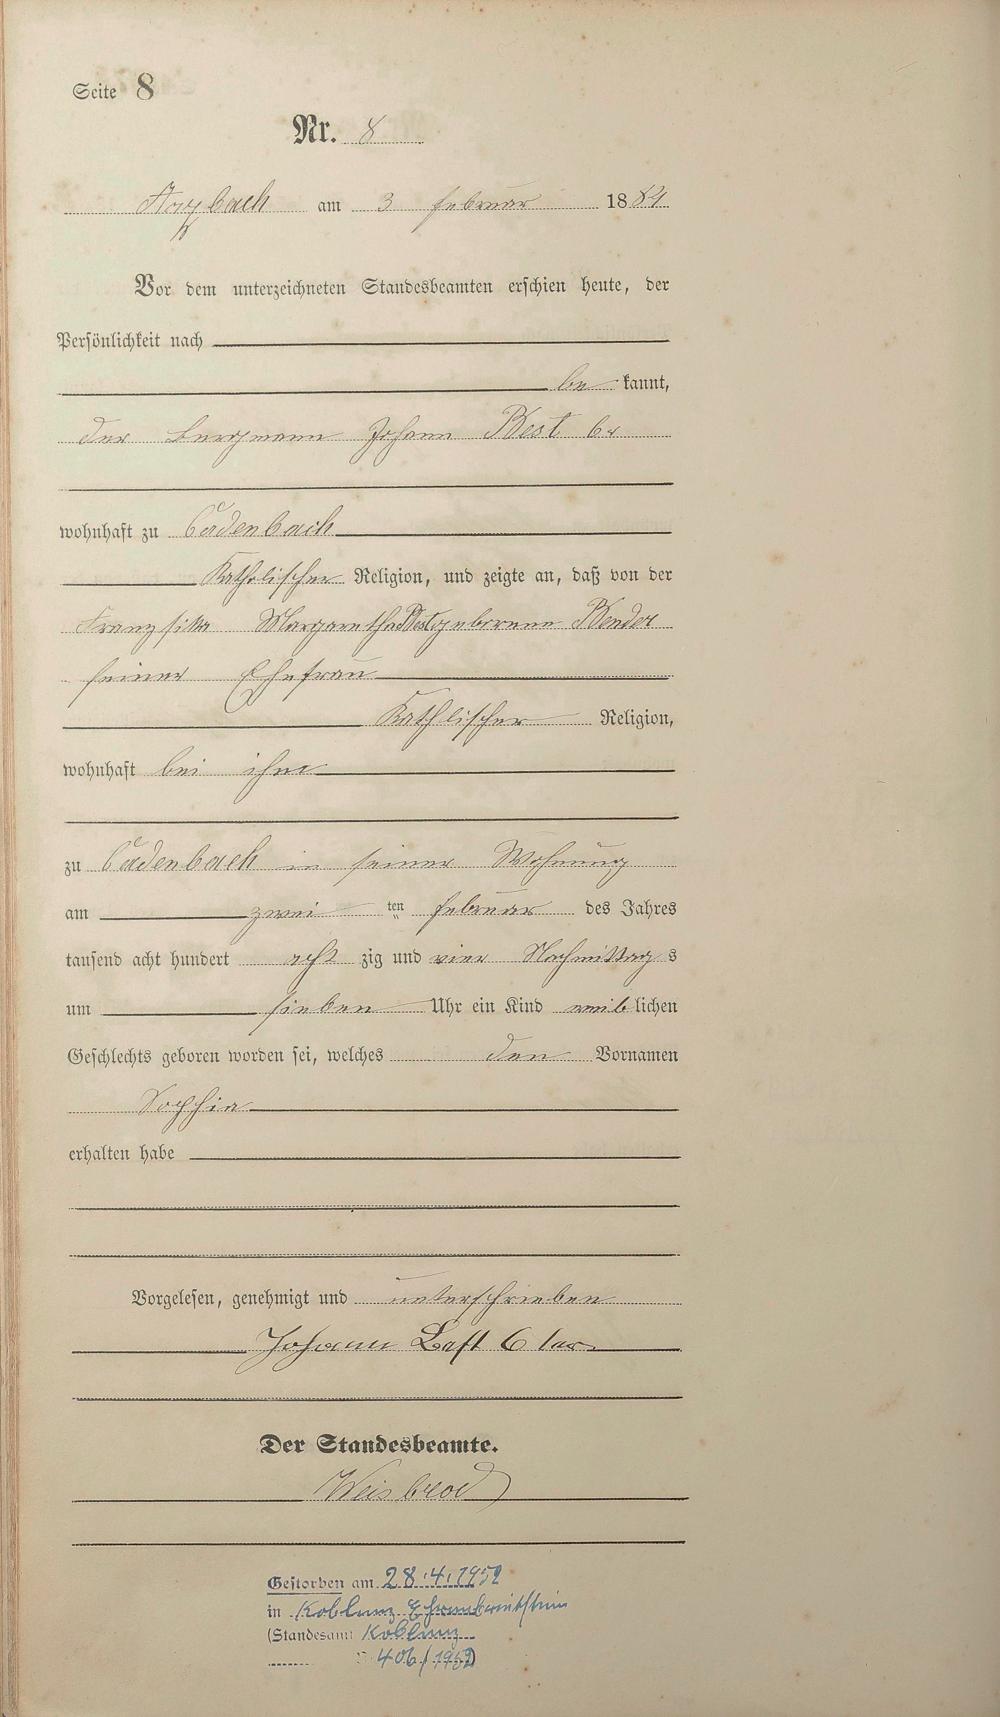 Seite 8
Nr. 8
Arzbach am 3 Februar 1884
Vor dem unterzeichneten Standesbeamten erschien heute, der
Persönlichkeit nach
be kannt,
der Bergmann Johann Best 6r
wohnhaft zu Cadenbach
Katholischer Religion, und zeigte an, daß von der
Franziska Margaretha Best geborenen Bender
seiner Ehefrau
Kathlischer Religion,
wohnhaft bei ihm
zu Cadenbach in seiner Wohnung
am zwei ten Februar des Jahres
tausend acht hundert acht zig und vier Nachmittag s
um sieben Uhr ein Kind weib lichen
Geschlechts geboren worden sei, welches den Vornamen
Sophia
erhalten habe
Vorgelesen, genehmigt und unterschrieben
Johann Best 6 ter
Der Standesbeamte.
Weisbrod
Gestorben am 28.4.1952
in Koblenz Ehrenbreitstein
(Standesamt Koblenz
406/1952)